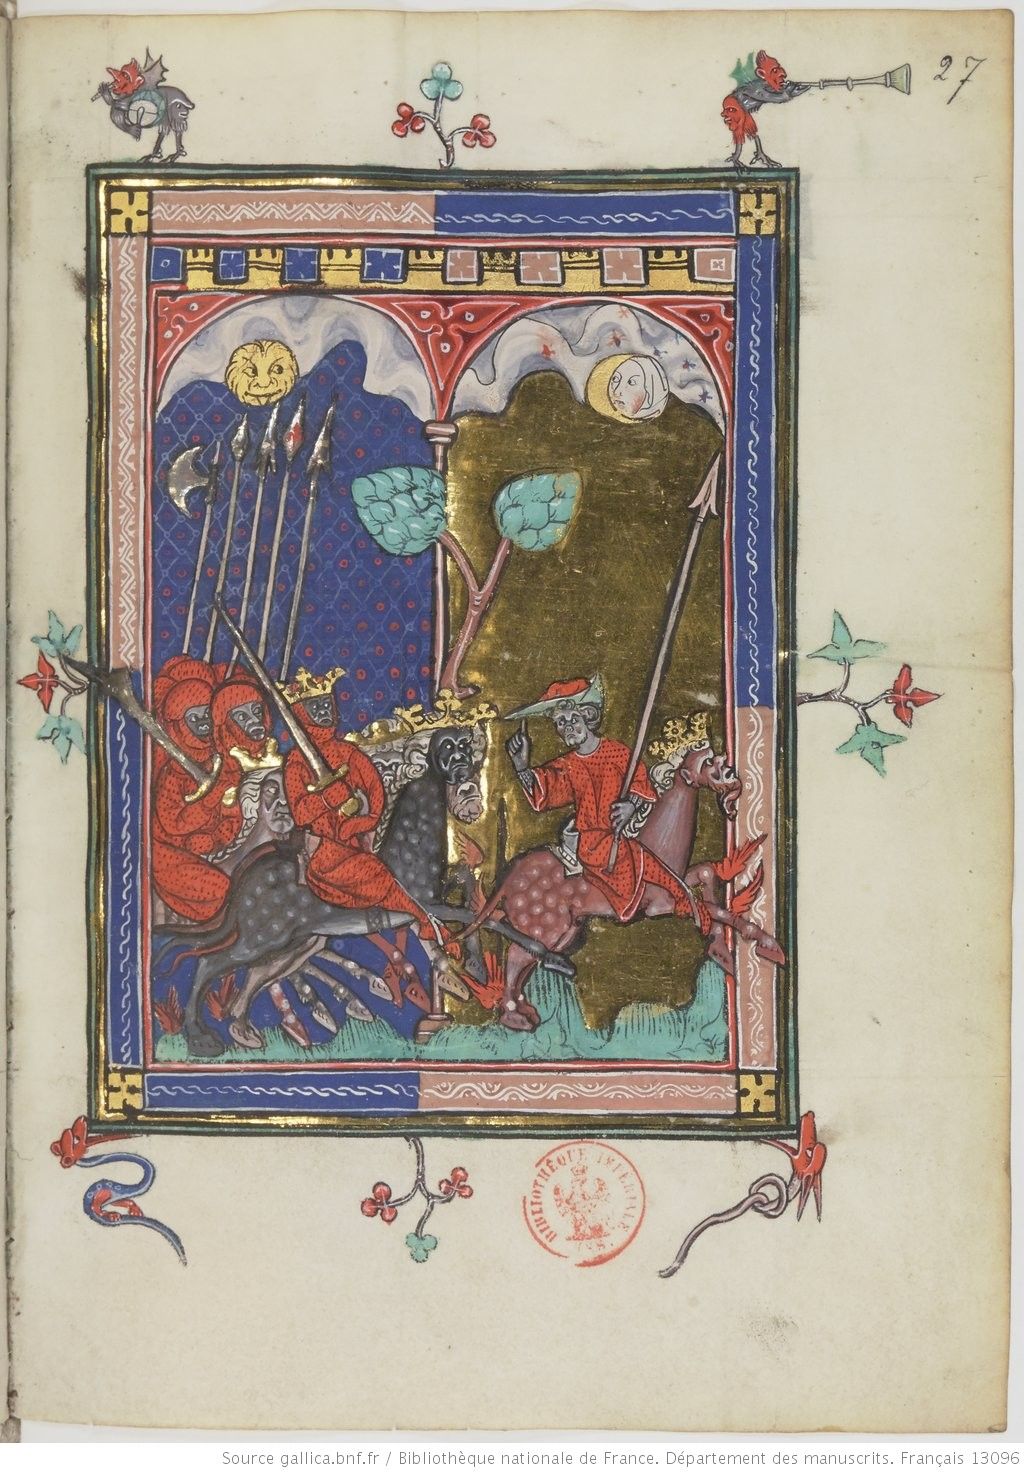 27
BIBLIOTHÈQUE IMPÉRIALE
Source gallica.bnf.fr / Bibliothèque nationale de France. Département des manuscrits. Français 13096